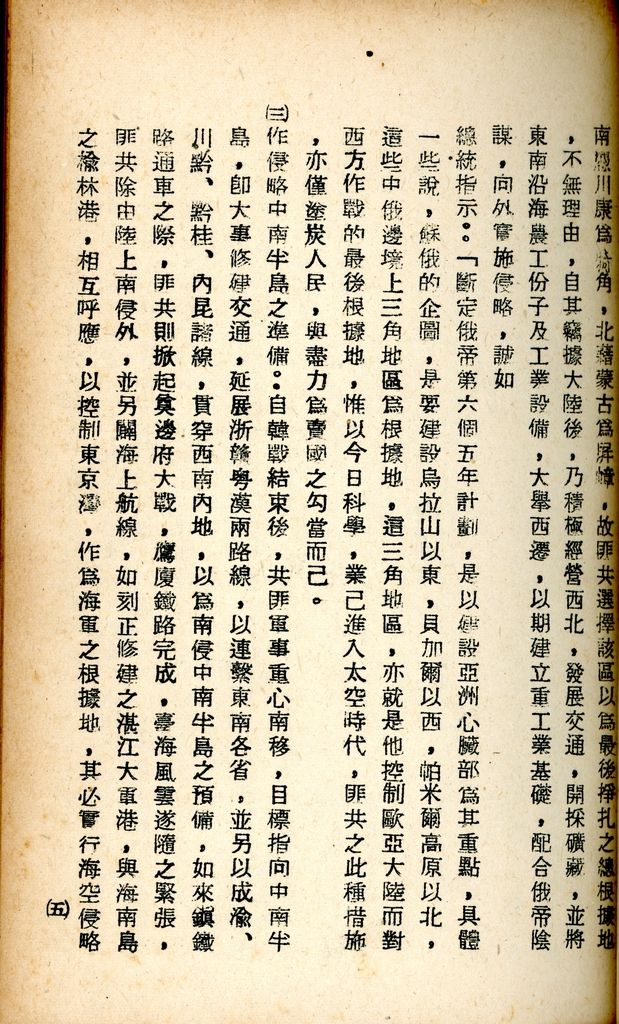 南經川康爲犄角，北藉蒙古爲屏幛，故匪共選擇該區以爲最後掙扎之總根據地
，不無理由，自其竊據大陸後，乃積極經營西北，發展交通，開採礦藏，並將
東南沿海農工份子及工業設備，大舉西遷，以期建立重工業基礎，配合俄帝陰
謀，向外實施侵略，誠如
總統指示：「斷定俄帝第六個五年計劃，是以建設亞洲心臟部爲其重點，具體
一些說，蘇俄的企圖，是要建設烏拉山以東，貝加爾以西，帕米爾高原以北，
這些中俄邊境上三角地區爲根據地，這三角地區，亦就是他控制歐亞大陸而對
西方作戰的最後根據地，惟以今日科學，業已進入太空時代，匪共之此種措施
，亦僅塗炭人民，與盡力爲賣國之勾當而已。
㈢作侵略中南半島之準備：自韓戰結束後，共匪軍事重心南移，目標指向中南半
島，卽大事修建交通，延展浙贛粵漢兩路線，以連繫東南各省，並另以成渝、
川黔、黔桂、內昆諸線，貫穿西南內地，以爲南侵中南半島之預備，如來鎭鐵
路通車之際，匪共則掀起奠邊府大戰，鷹廈鐵路完成，臺海風雲遂隨之緊張，
匪共除由陸上南侵外，並另闢海上航線，如刻正修建之湛江大軍港，與海南島
之榆林港，相互呼應，以控制東京灣，作爲海軍之根據地，其必實行海空侵略
㈤